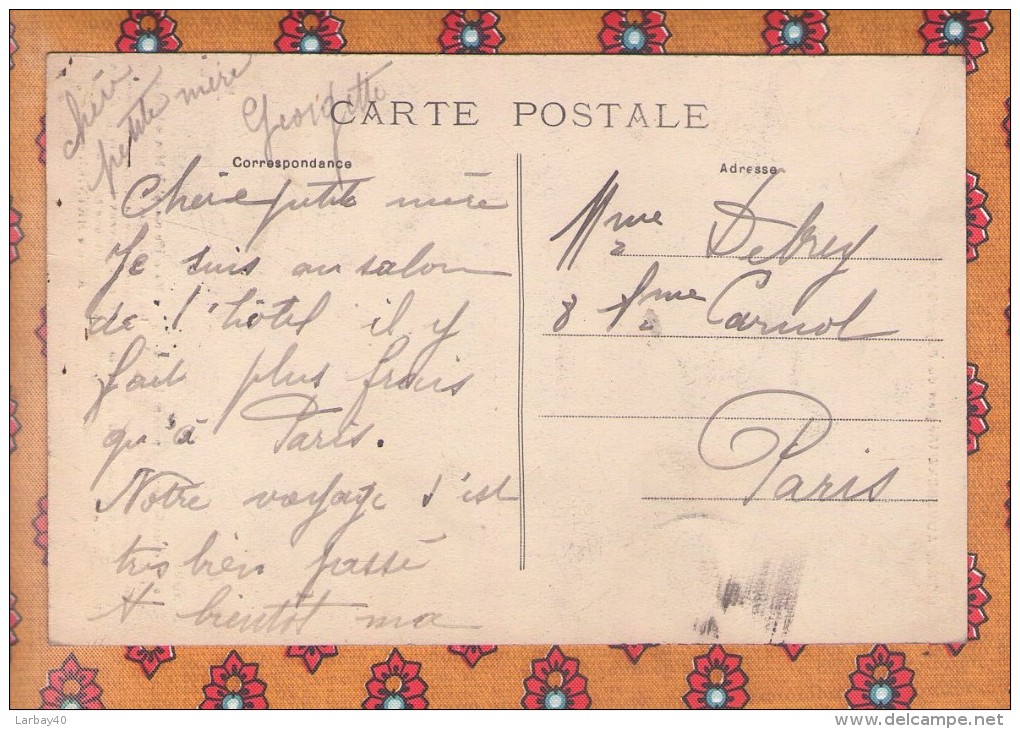 CARTE POSTALE
Correspondance
Chérie petite mère
Je suis au salon
de l'hôtel il y
fait plus frais
qu'à Paris.
Notre voyage s'est
très bien passé
A bientôt ma
chérie
petite mère
Georgette
Adresse
Mme Debrey
8 Carnot
Paris
Larbay40
www.delcampe.net